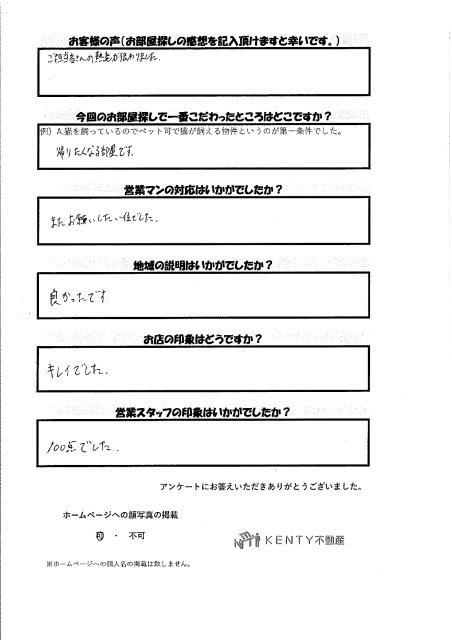 お客様の声(お部屋探しの感想を記入頂けますと幸いです。)
ご担当者さんの熱意が伝わりました。
今回のお部屋探しで一番こだわったところはどこですか?
例)A.猫を飼っているのでペット可で猫が飼える物件というのが第一条件でした。
帰りたくなる部屋です。
営業マンの対応はいかがでしたか?
またお願いしたい位でした。
地域の説明はいかがでしたか?
良かったです
お店の印象はどうですか?
キレイでした。
営業スタッフの印象はいかがでしたか?
100点でした。
アンケートにお答えいただきありがとうございました。
ホームページへの顔写真の掲載
可 ・ 不可
KENTY不動産
※ホームページへの個人名の掲載は致しません。